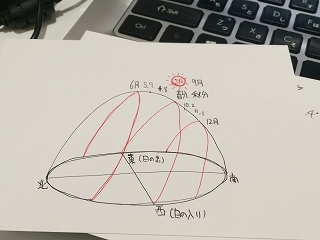 3月 9月
6月 5,7 4,8 春分 秋分
10,2
11,1
12月
東 (日の出)
北
南
西 (日の入り)